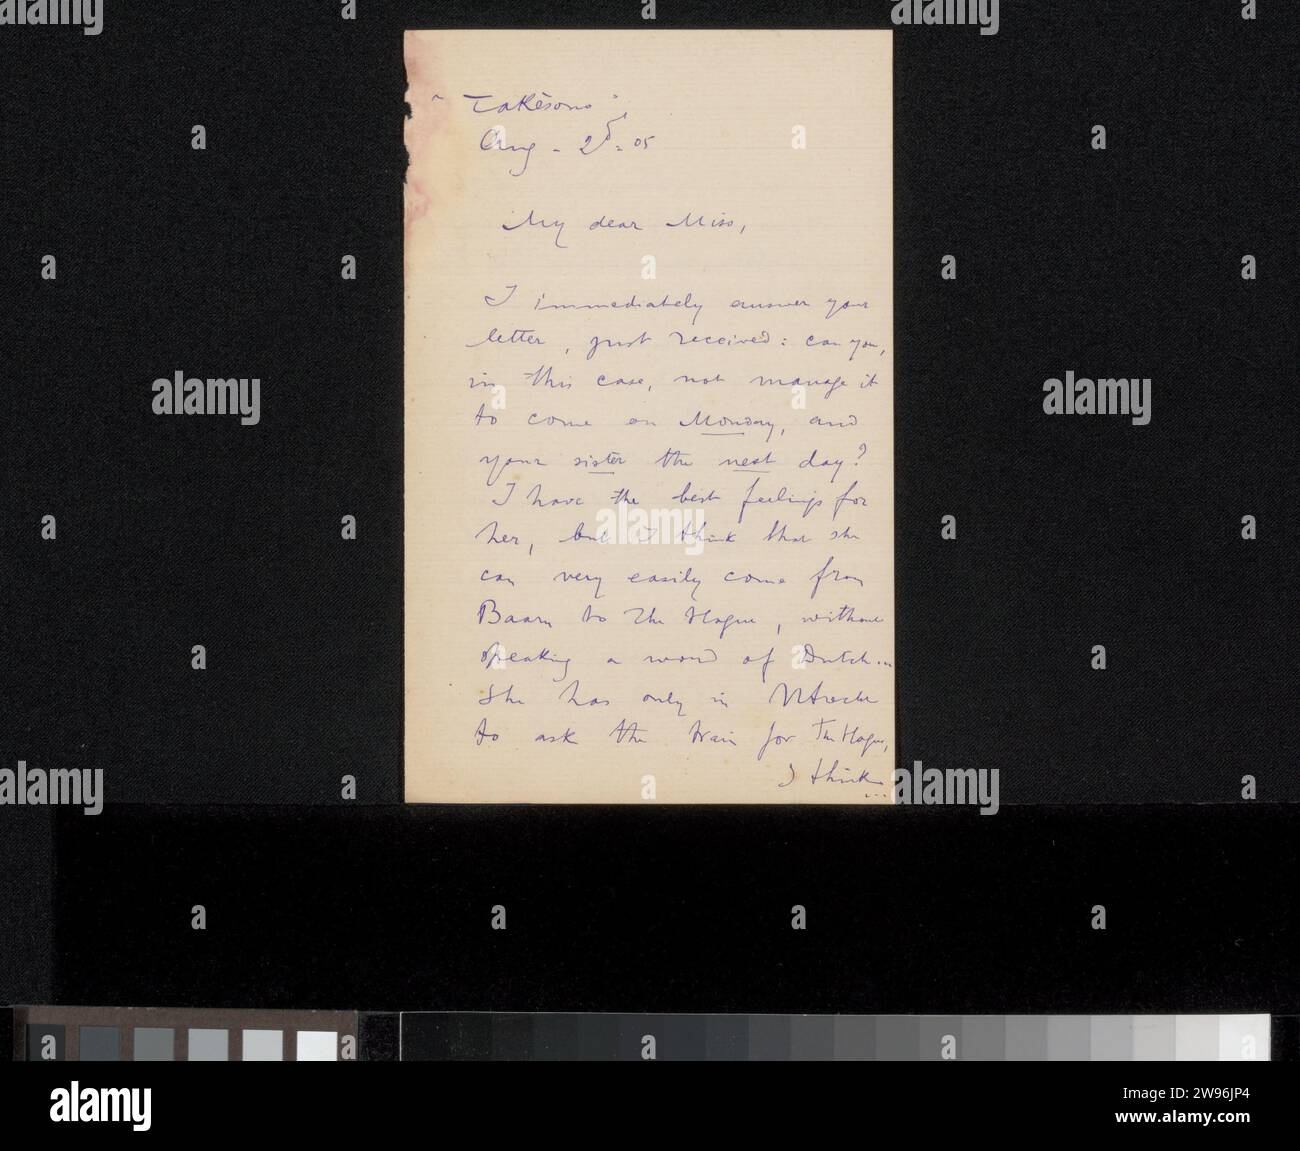 "Takĕsono"
Aug - 05
My dear Miss,
I immediately answer your
letter, just received: can you,
in this case, not manage it
to come on Monday, and
your sister the next day?
I have the best feelings for
her, but I think that she
can very easily come from
Baarn to The Hague, without
speaking a word of Dutch...
She has only in Utrecht
to ask the train for The Hague,
I think
...
alamy
Image ID: 2W96JP4
www.alamy.com